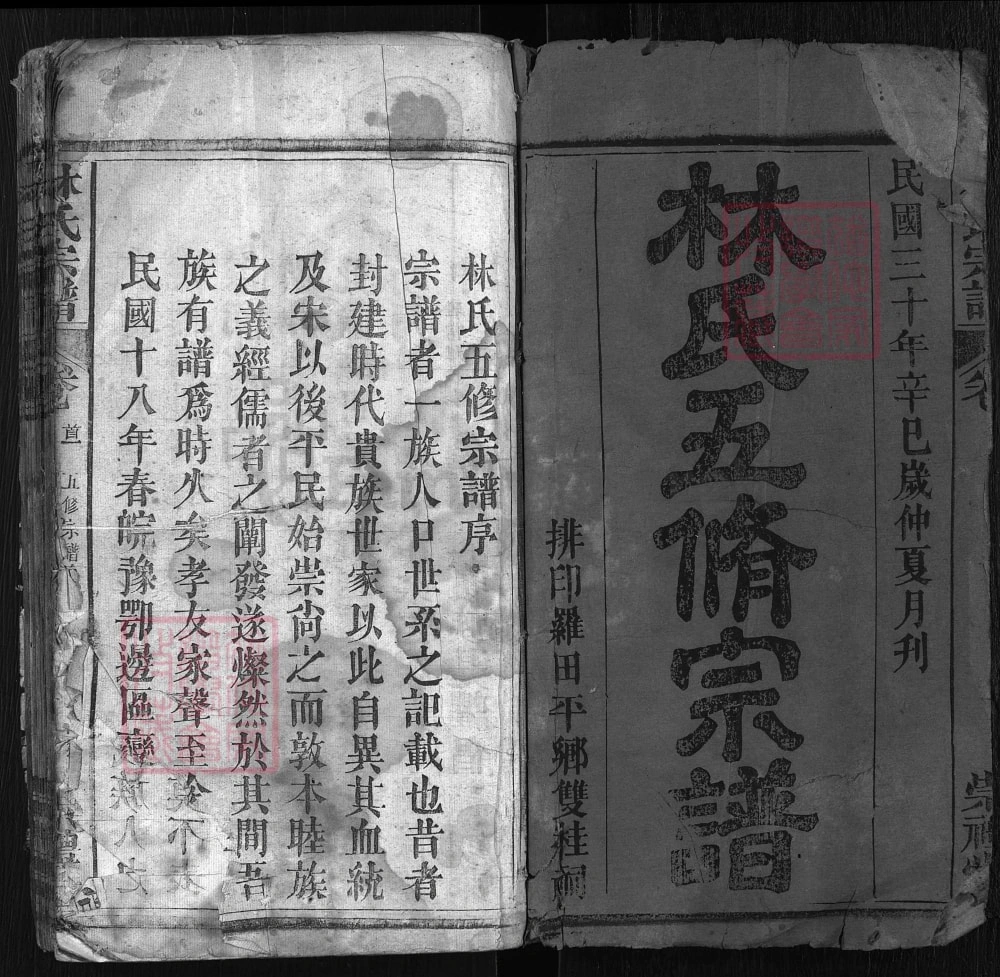 民國三十年辛巳歲仲夏月刊
林氏五脩宗譜
排印羅田平鄉雙桂祠
林氏五修宗譜序
宗譜者一族人口世系之記載也昔者
封建時代貴族世家以此自異其血統
及宋以後平民始崇尙之而敦本睦族
之義經儒者之闡發遂燦然於其間吾
族有譜爲時久矣孝友家聲至今
民國十八年春皖豫鄂邊區變
林氏宗譜
卷 首 五修宗譜